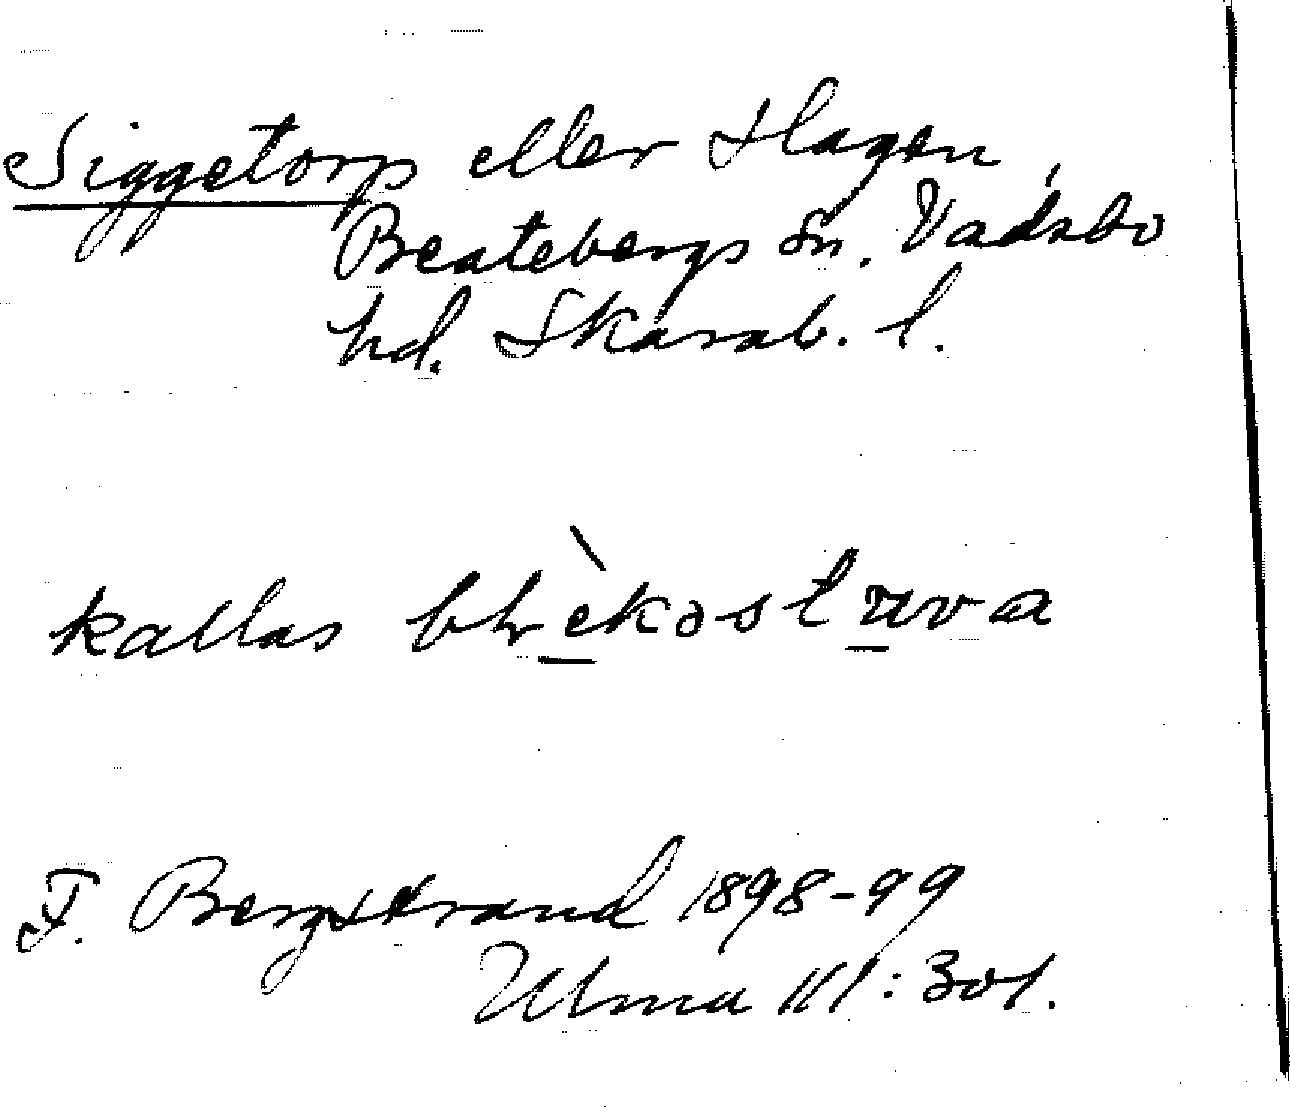 Siggetorp eller Hagen,
Beatebergs sn. Vadsbo
hd. Skarab. l.
kallas
F. Bergstrand 1898-99
Ulma 111:301.